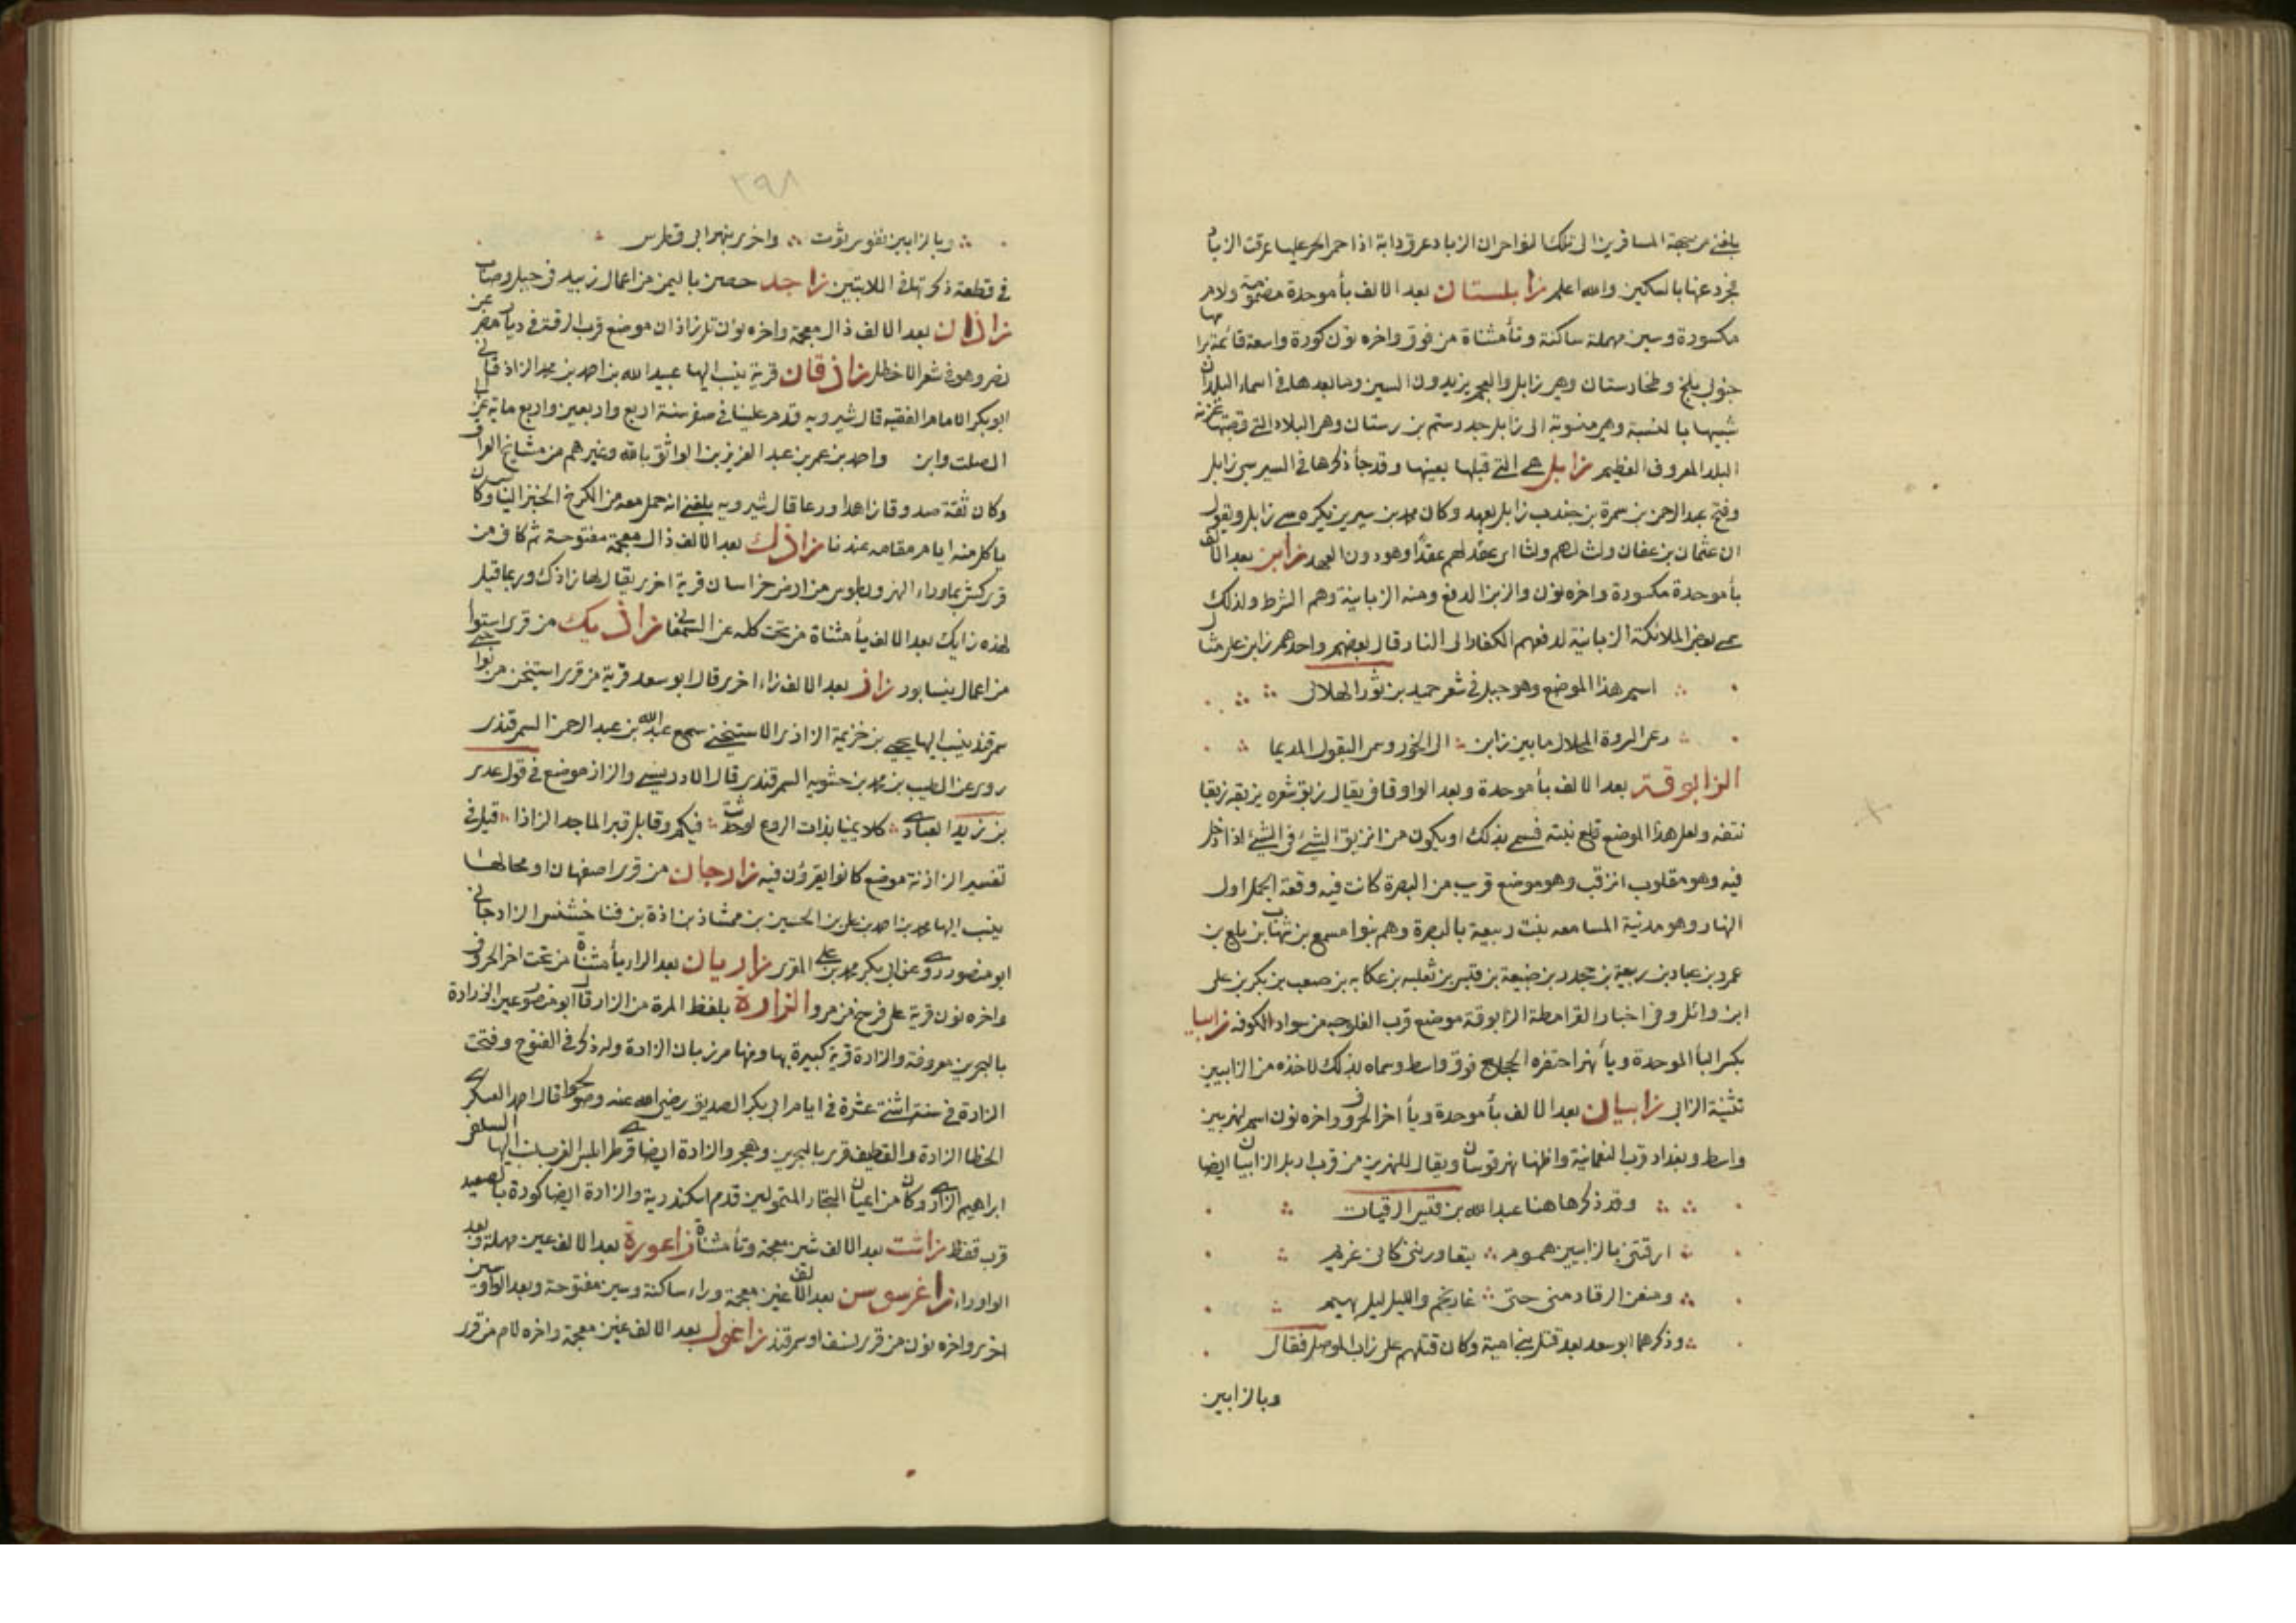 بلغني من جهة المسافرين الى تلك النواحي ان الزباد عرق دابة اذا حمي الحر عليها عرقت الزباد
فجرد عنها بالسكين والله اعلم زابلستان بعد الالف بأ موحدة مضمومة ولام
مكسورة وسين مهملة ساكنة وتأ مثناة من فوق واخره نون كورة واسعة قائمة براسها
جنوبي بلخ وطخارستان وهي زابل والعجم يزيدون السين وما بعدها في اسماء البلدان
شبيها بالنسبة وهي منسوبة الى زابل جد رستم بن رستان وهي البلاد التي قصبتها غزنة
البلد المعروف العظيم زابل هي التي قبلها بعينها وقد جأ ذكرها في السير سبي زابل
وفتح عبد الرحمن بن سمرة بن جندب زابل بعهد وكان محمد بن سيرين يكره سبي زابل ويقول
ان عثمان بن عفان ولث لهم ولثا اي عقد لهم عقدا وهو دون العهد زابن بعد الالف
بأ موحدة مكسورة واخره نون والزبن الدفع ومنه الزبانية وهم الشرط ولذلك
سمي بعض الملائكة الزبانية لدفعهم الكفار الى النار قال بعضهم واحدهم زابن على مثال
اسم هذا الموضع وهو جبل في شعر حميد بن ثور الهلالي
رعى الروة المحلال ما بين زابن الى الخور وسمي البقول المديما
الزابوقة بعد الالف بأ موحدة وبعد الواو قاف يقال زبق شعره يزبقه زبقا
نتفه ولعل هذا الموضع قلع نبته فسمي بذلك او يكون من انزبق الشيء في الشيء اذا دخل
فيه وهو مقلوب انزقب وهو موضع قريب من البصرة كانت فيه وقعة الجمل اول
النهار وهو مدينة المسامعه بنت ربيعة بالبصرة وهم بنوا مسمع بن شهاب بن بلع بن
عمرو بن عباد بن ربيعة بن جحدر بن ضبيعة بن قيس بن ثعلبه بن عكابه بن صعب بن بكر بن علي
ابن وائل وفي اخبار القرامطة الزابوقة موضع قرب الفلوجه من سواد الكوفه زابيا
بكسر البأ الموحدة ويأ نهر احتفره الحجاج فوق واسط وسماه بذلك لاخذه من الزابيين
تثنية الزابي زابيان بعد الالف بأ موحدة ويأ اخر الحروف واخره نون اسم لنهر بين
واسط وبغداد قرب النعمانية واظنها نهر قوسان ويقال للنهرين من قرب اربل الزابيان ايضا
وقد ذكرها هنا عبد الله بن قيس الرقيات
ارقتني بالزابيين هموم يتعاورنني كاني غريم
ومنعن الرقاد مني حتى غار نجم والليل ليل بهيم
وذكرهما ابو سعد بعد قتل بني امية وكان قتلهم على زاب الموصل فقال
وبالزابين
٣٩٨
وبالزابيين نفوس ثوت واخرى بنهر ابي فطرس
في قطعة ذكرتها في اللابتين زاجد حصن باليمن من اعمال زبيد في جبل وصاب
زاذان بعد الالف ذال معجمة واخره نون تل زاذان موضع قرب الرقة في ديار مضر عن
نصر وهو في شعر الاخطل زاذقان قرية ينسب اليها عبيد الله بن احمد بن محمد الزاذقاني
ابو بكر الامام الفقيه قال شيرويه قدم علينا في صفر سنة اربع واربعين واربع ماية عن ابي
الصلت وابن واحد بن عمر بن عبد العزيز بن الواثق بالله وغيرهم من مشايخ العراق
وكان ثقة صدوقا زاهدا ورعا قال شيرويه بلغني انه حمل معه من الكرخ الخبز اليابس وكان
ياكل منه ايام مقامه عندنا زاذك بعد الالف ذال معجمة مفتوحة ثم كاف من
قرى كش بماوراء النهر وبطوس من ارض خراسان قرية اخرى يقال لها زاذك وربما قيل
لهذه زايك بعد الالف يأ مثناة من تحت كله عن السمعاني زاذيك من قرى استوا
من اعمال نيسابور زاز بعد الالف زاء اخرى قال ابو سعد قرية من قرى استيخن من نواحي
سمرقند ينسب اليها يحيى بن خزيمة الزازي الاستيخني سمع عبد الله بن عبد الرحمن السمرقندي
روى عن الطيب بن محمد بن حشويه السمرقندي قال الادريسي والزاز موضع في قول عدي
بن زيد العبادي كلا يمينا بذات الروع لو حدثت فيكم وقابل قبر الماجد الزاذا قيل في
تفسير الزاذ انه موضع كانوا يقرؤن فيه زارجان من قرى اصفهان او محالها
ينسب اليها محمد بن احمد بن علي بن الحسين بن ممشاذ بن اذة بن فناخشنس الزارجاني
ابو منصور روى عن ابي بكر محمد بن علي المقري زاريان بعد الراء يأ مثناة من تحت اخر الحروف
واخره نون قرية على فرسخ من مرو الزارة بلفظ المرة من الزار قال ابو منصور عين الزارة
بالبحرين معروفة والزارة قرية كبيرة بها ومنها مرزبان الزارة وله ذكر في الفتوح وفتحت
الزارة في سنة اثنتي عشرة في ايام ابي بكر الصديق رضي الله عنه وصولحوا قال احمد العسكري
الخط الزارة والقطيف قرى بالبحرين وهجر والزارة ايضا قرطرابلس الغرب ينسب اليها السلفي
ابراهيم الزاري وكان من اعيان التجار المتمولين قدم اسكندرية والزارة ايضا كورة بالصعيد
قرب قفط زاشت بعد الالف شين معجمة وتأ مثناة زاعورة بعد الالف عين مهملة وبعد
الواو راء زاغرسوسن بعد الالف غين معجمة وراء ساكنة وسين مفتوحة وبعد الواو سين
اخرى واخره نون من قرى نسف او سمرقند زاغول بعد الالف غين معجمة واخره لام من قرى